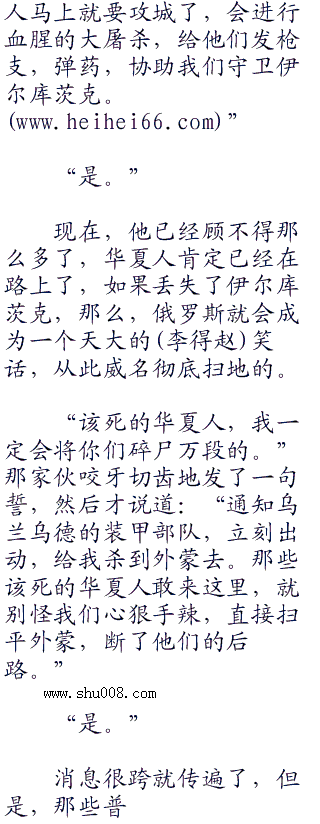 人马上就要攻城了，会进行
血腥的大屠杀，给他们发枪
支，弹药，协助我们守卫伊
尔库茨克。
(www.heihei66.com)”
“是。”
现在，他已经顾不得那
么多了，华夏人肯定已经在
路上了，如果丢失了伊尔库
茨克，那么，俄罗斯就会成
为一个天大的(李得赵)笑
话，从此威名彻底扫地的。
“该死的华夏人，我一
定会将你们碎尸万段的。”
那家伙咬牙切齿地发了一句
誓，然后才说道：“通知乌
兰乌德的装甲部队，立刻出
动，给我杀到外蒙去。那些
该死的华夏人敢来这里，就
别怪我们心狠手辣，直接扫
平外蒙，断了他们的后
路。”
www.shu008.com
“是。”
消息很跨就传遍了，但
是，那些普